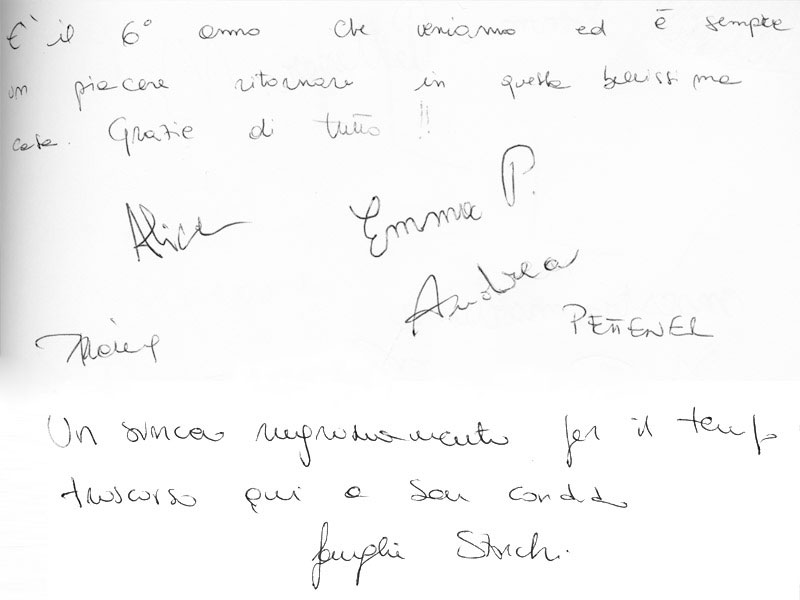 E' il 6° anno che veniamo ed è sempre
un piacere ritornare in questa bellissima
casa. Grazie di tutto !!
Alice Emma P.
Andrea
Un sincero ringraziamento per il tempo
trascorso qui a San Candido
famiglia